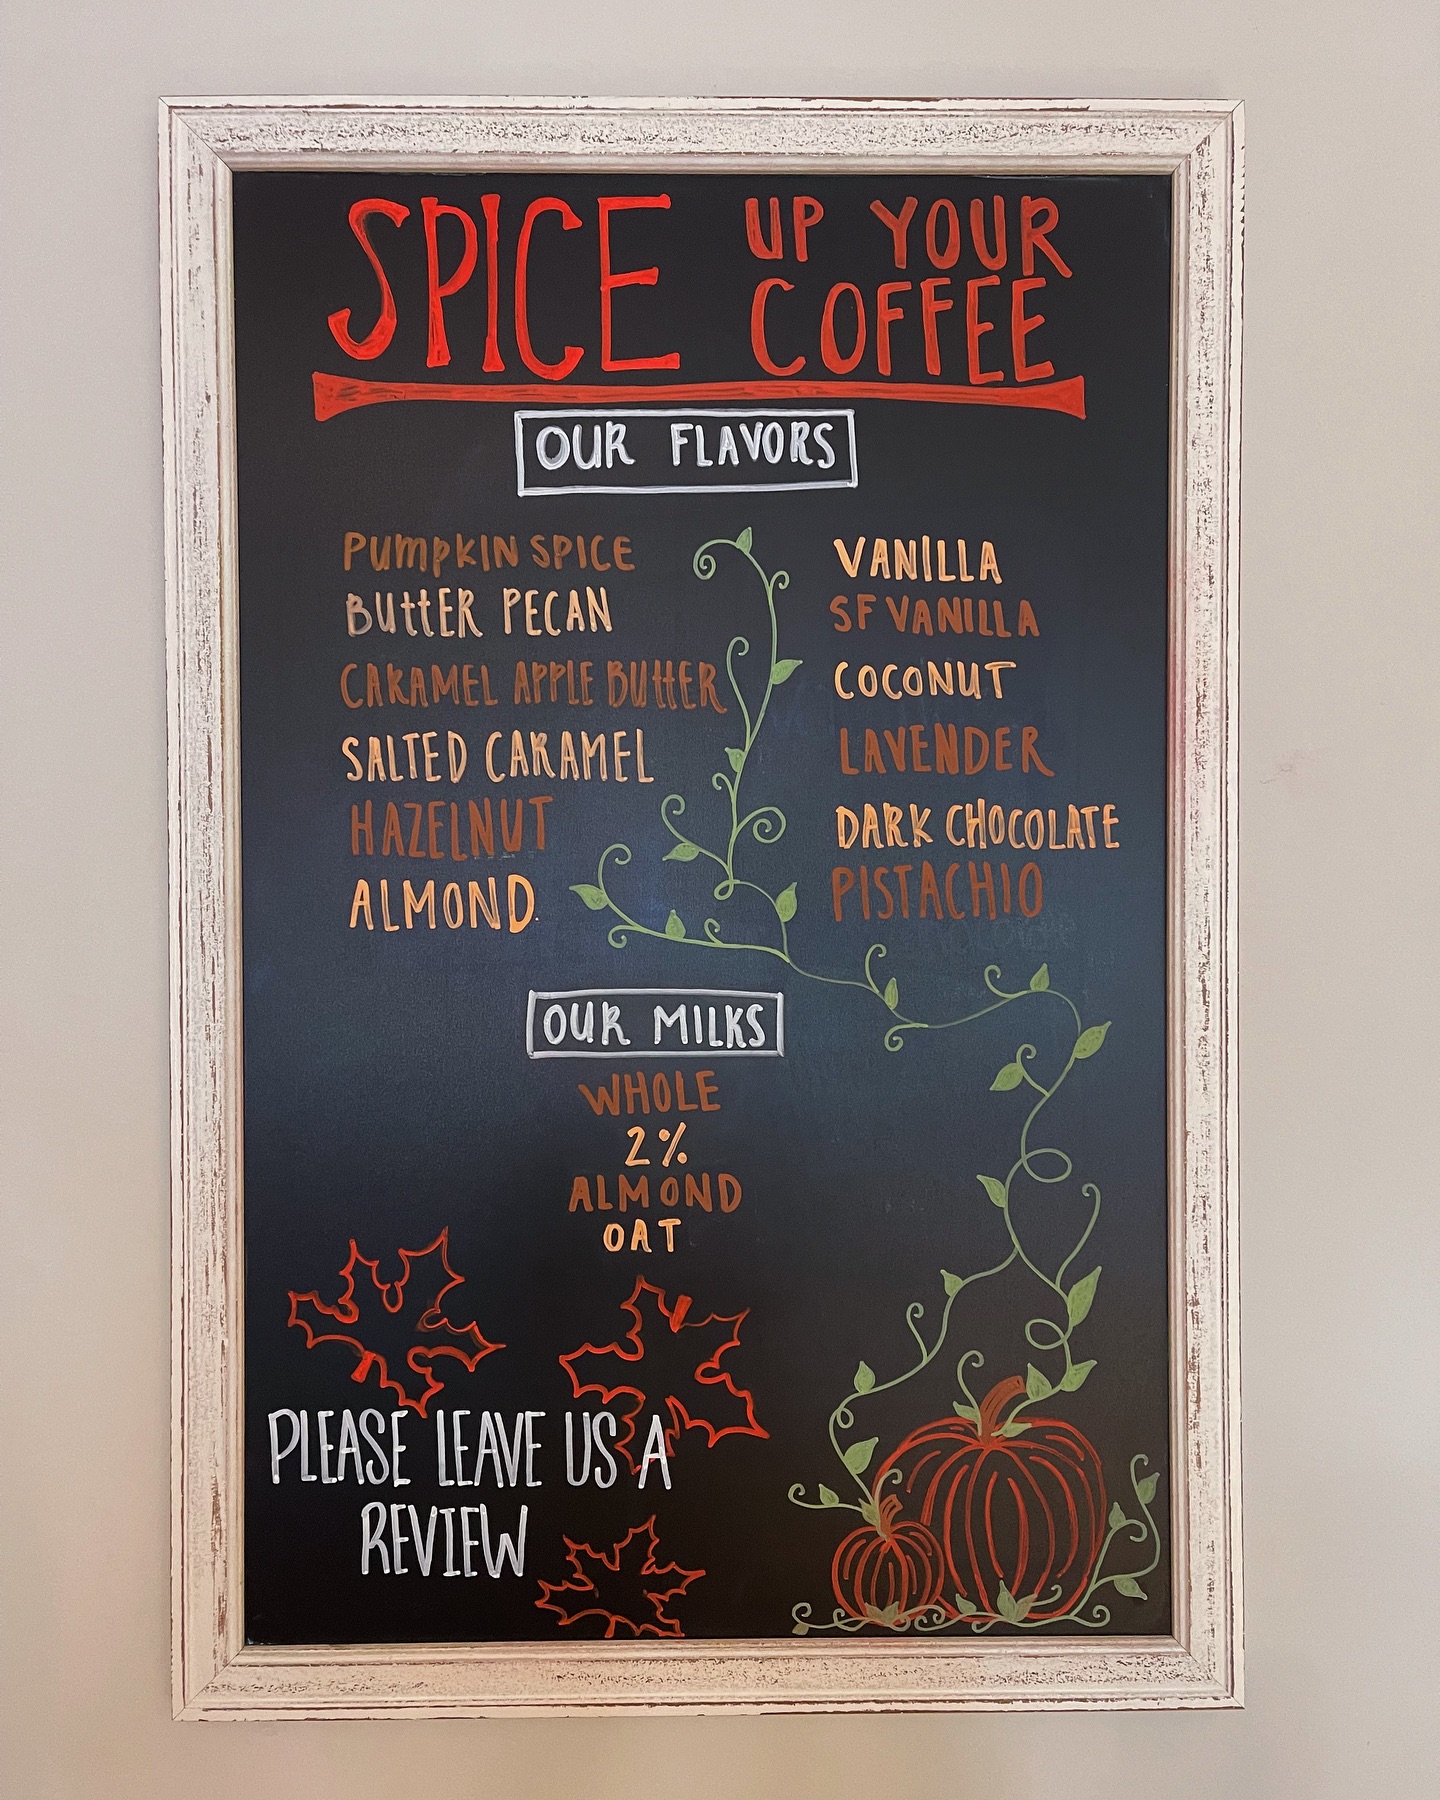 SPICE UP YOUR
COFFEE
OUR FLAVORS
PUMPKIN SPICE
BUTTER PECAN
CARAMEL APPLE BUTTER
SALTED CARAMEL
HAZELNUT
ALMOND
VANILLA
SF VANILLA
COCONUT
LAVENDER
DARK CHOCOLATE
PISTACHIO
OUR MILKS
WHOLE
2%
ALMOND
OAT
PLEASE LEAVE US A
REVIEW